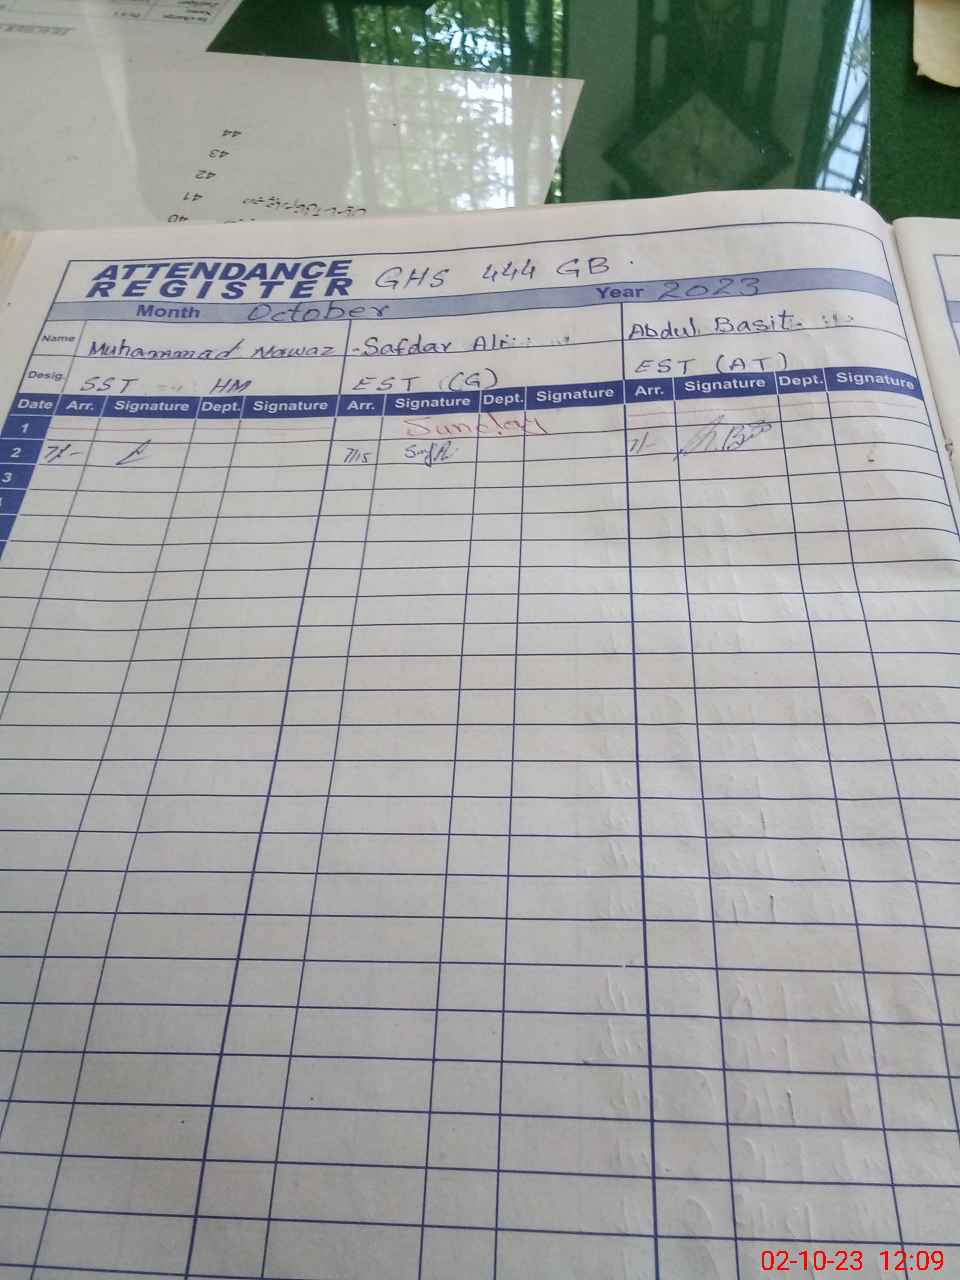 44
43
42
41
40
ATTENDANCE REGISTER GHS 444 GB
Month October Year 2023
Name Muhammad Nawaz Safdar Ali Abdul Basit
Desig. SST HM EST (G) EST (AT)
Date Arr. Signature Dept. Signature Arr. Signature Dept. Signature Arr. Signature Dept. Signature
1 Sunday
2 7/- 7/15 7/-
3
02-10-23 12:09